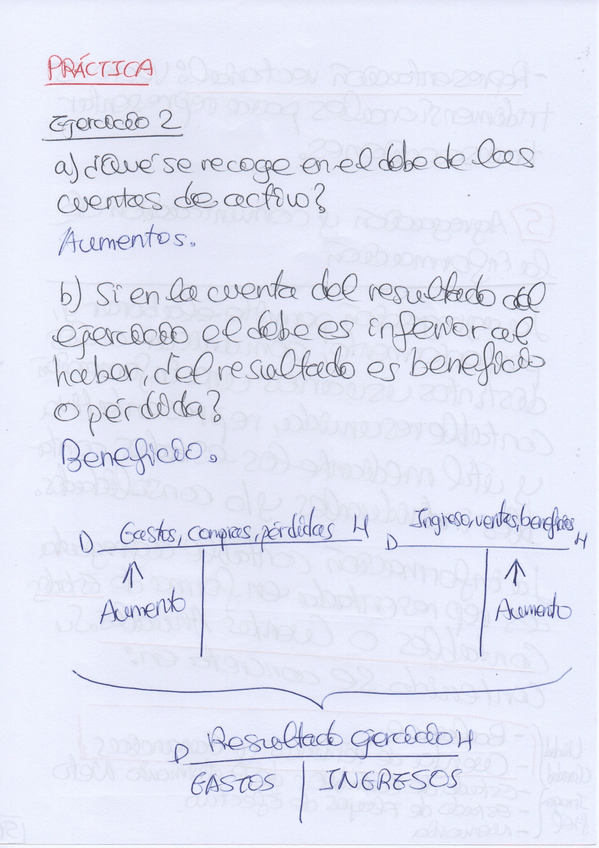 PRÁCTICA
Ejercicio 2
a) ¿Qué se recoge en el debe de las
cuentas de activo?
Aumentos.
b) Si en la cuenta del resultado del
ejercicio el debe es inferior al
haber, ¿el resultado es beneficio
o pérdida?
Beneficio.
D Gastos, compras, pérdidas H
↑
Aumento
Ingreso, ventas, beneficios
D H
↑
Aumento
D Resultado ejercicio H
GASTOS INGRESOS